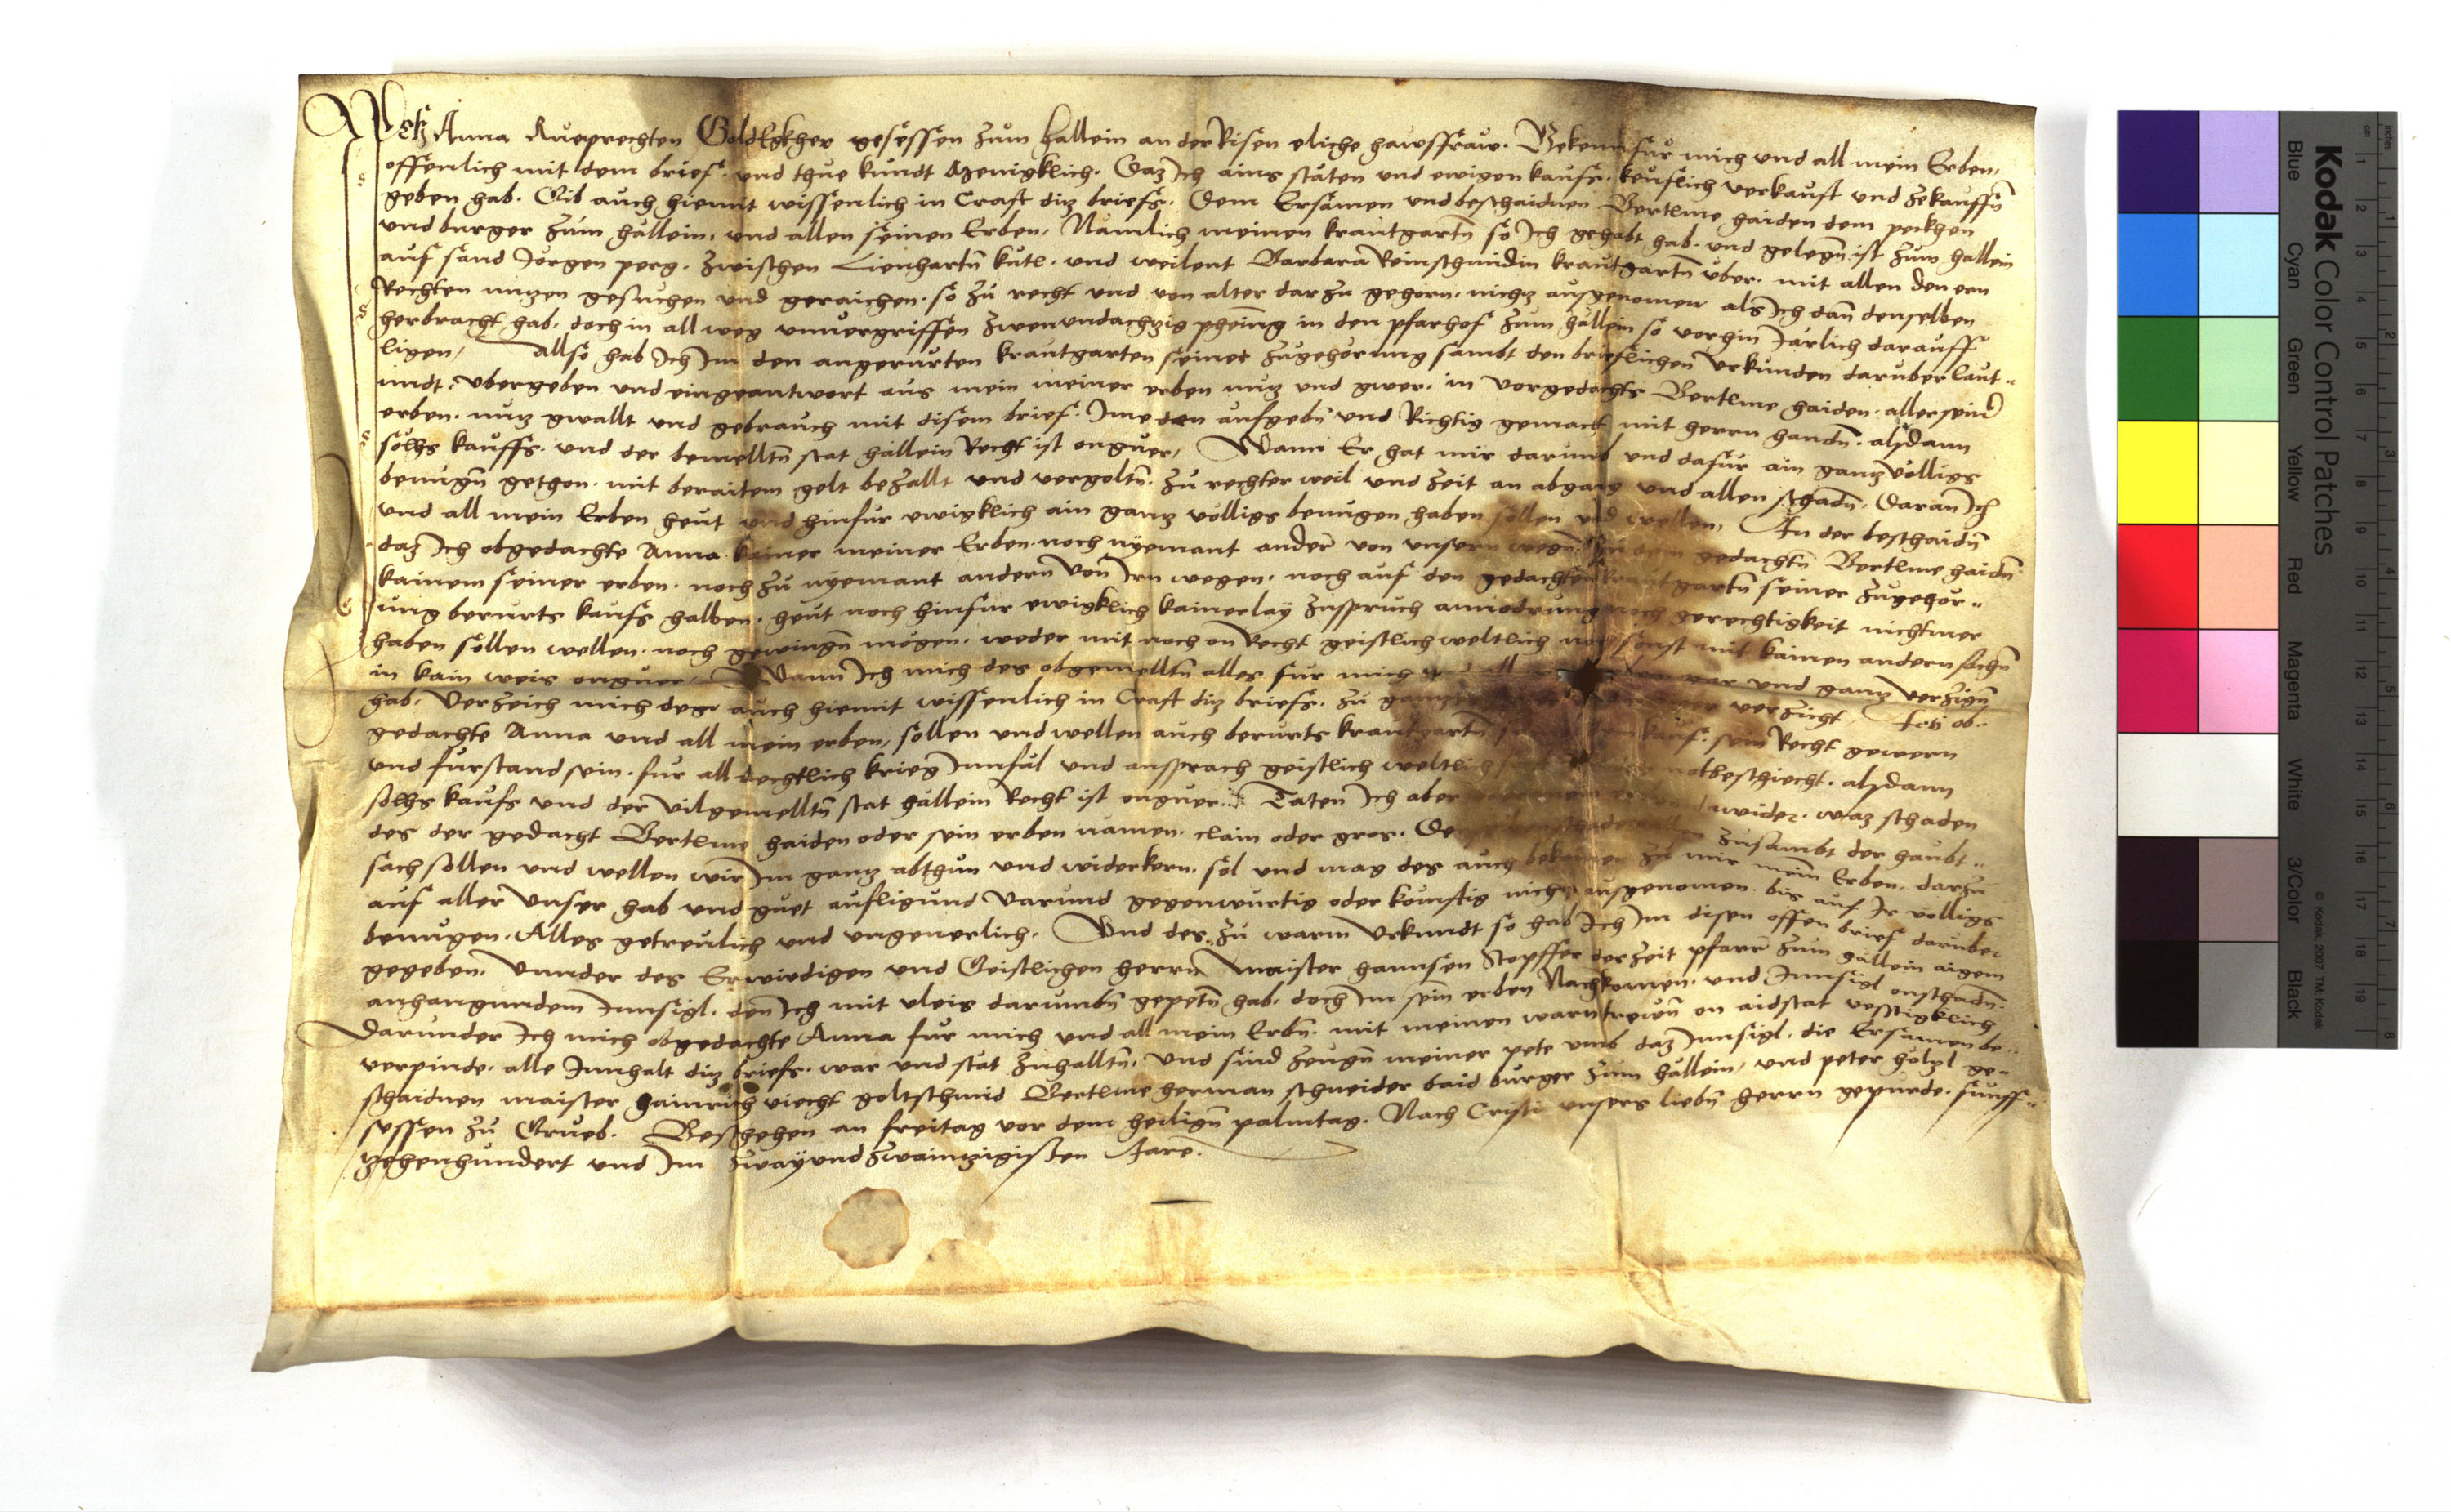 Ich Anna Rueprechten Goldegkher gesessen zum hallein an der Risen eliche hawsfraw. Bekenn für mich und all mein Erben,
offenlich mit dem brief. und thue kundt Menigklich. Daz Ich ains stäten und ewigen kaufs. keuflich verkauft und zekauffn̄
geben hab. Gib auch hiemit wissenlich in Craft diz briefs. Dem Ersamen und beschaidnen Bertlme haiden dem pekhen
und burger zum hällein. und allen seinen Erben, Nämlich meinen krautgartn̄ so Ich gehabt hab. und gelegn̄ ist zum hällein
auf sand Jörgen perg. zwischen Lienhartn̄ kütl. und weilent Barbara Reinschmidin krautgartn̄ über. mit allen den ern
Rechten nuzen gesuchen und geraichen. so zu recht und von alter darzu gehorn. nichz ausgenomen als Ich dan̄ denselben
herbracht hab. doch in all weg unvergriffen zwenundachzig pheing in den pfarhof zum hällein so vorhin Järlich darauff
ligen, Allso hab Ich Im den angerurten krautgarten seiner zugehörung sambt den brieflichen Urkunden daruber laut„
undt. ubergeben und eingeantwort aus mein meiner erben nuz und gwer. in vorgedachts Bertlme haiden. aller sein̄
erben. nuz gwallt und gebrauch mit disem brief. Ime den aufgebn̄ und Richtig gemacht mit herrn handn̄. alsdann
solhs kauffs. und der bemelltn̄ stat hällein Recht ist ongever, Wann Er hat mir darumb und dafür ain ganz völligs
benugn̄ gethon. mit beraitem gelt bezallt und vergoltn̄. zu rechter weil und zeit an abgang und allen schadn̄, Daran Ich
und all mein Erben heut und hinfür ewigklich ain ganz völligs benügen haben söllen und wellen, In der beschaidn̄
daz Ich obgedachte Anna kainer meiner Erben. noch nÿemant ander von unsern wegn̄. zu dem gedachtn̄ Bertlme haidn̄
kainem seiner erben. noch zu nÿemant andern von Irn wegen. noch auf den gedachten krautgartn̄ seiner zugehör„
ung berurts kaufs halben. heut noch hinfür ewigklich kainerlaÿ zuspruch annodrung noch gerechtigkeit nichtmer
haben söllen wellen. noch gewingn̄ mögen. weder mit noch on Recht geistlich weltlich noch sonst mit kainen andern sachn̄
in kain weis ongever, Wann Ich mich des obgemelltn̄ alles für mich und all gar und ganz verzign̄
hab. Verzeich mich des auch hiemit wissenlich in Craft diz briefs. zu ganzer verzicht, Ich ob„
gedachte Anna und all mein erben, söllen und wellen auch berurts krautgartn̄ kauf. sein Recht gewern
und fürstand sein. für all Rechtlich krieg Innfäl und ansprach geistlich weltlich notbeschiecht. alsdann
solhs kaufs und der vilgemelltn̄ stat hällein Recht ist ongever. Täten Ich aber dawider. waz schaden
des der gedacht Bertlme haiden oder sein erben namen. clain oder gros. zusambt der haubt„
sach söllen und wellen wir Im ganz abthun und widerkern. söl und mag des auch bekomen zu mir mein̄ Erben. darzu
auf aller unser hab und guet aufligund varund gegenwurtig oder kunftig nichz ausgenomen. bis auf Ir völligs
benugen. Alles getreulich und ungeverlich. Und des zu warm Urkundt so hab Ich Im disen offen brief daruber
gegeben. Unnder des Erwirdigen und Geistlichen herrn Maister hannsen Stopffer derzeit pfarr̄ zum hällein aigem
anhangundem Innsigl. den Ich mit vleis darumbn̄ gepetn̄ hab. doch Im sein̄ erben Nachkomen. und Innsigl onschadn̄.
Darunder Ich mich obgedachte Anna für mich und all mein Erbn̄. mit meinen warn trewn̄ on aidstat vesstigklich
verpinde. alle Innhalt diz briefs. war und stät zuhalltn̄. Und sind zeugn̄ meiner pete umb daz Innsigl. die Ersamen be„
schaidnen maister hainrich viecht goltschmid Bertlme herman schneider baid burger zum hällein, und peter hölzl ge„
sessen zu Grueb. Beschehen an freitag vor dem heilign̄ palmtag. Nach Cristi unsers liebn̄ herrn gepurde. fünff„
zehenhundert und Im zwaÿundzwainzigisten Jare.
Kodak Color Control Patches
© Kodak, 2007 TM: Kodak
Blue Cyan Green Yellow Red Magenta White 3/Color Black
inches 1 2 3 4 5 6 7 8
cm 1 2 3 4 5 6 7 8 9 10 11 12 13 14 15 16 17 18 19